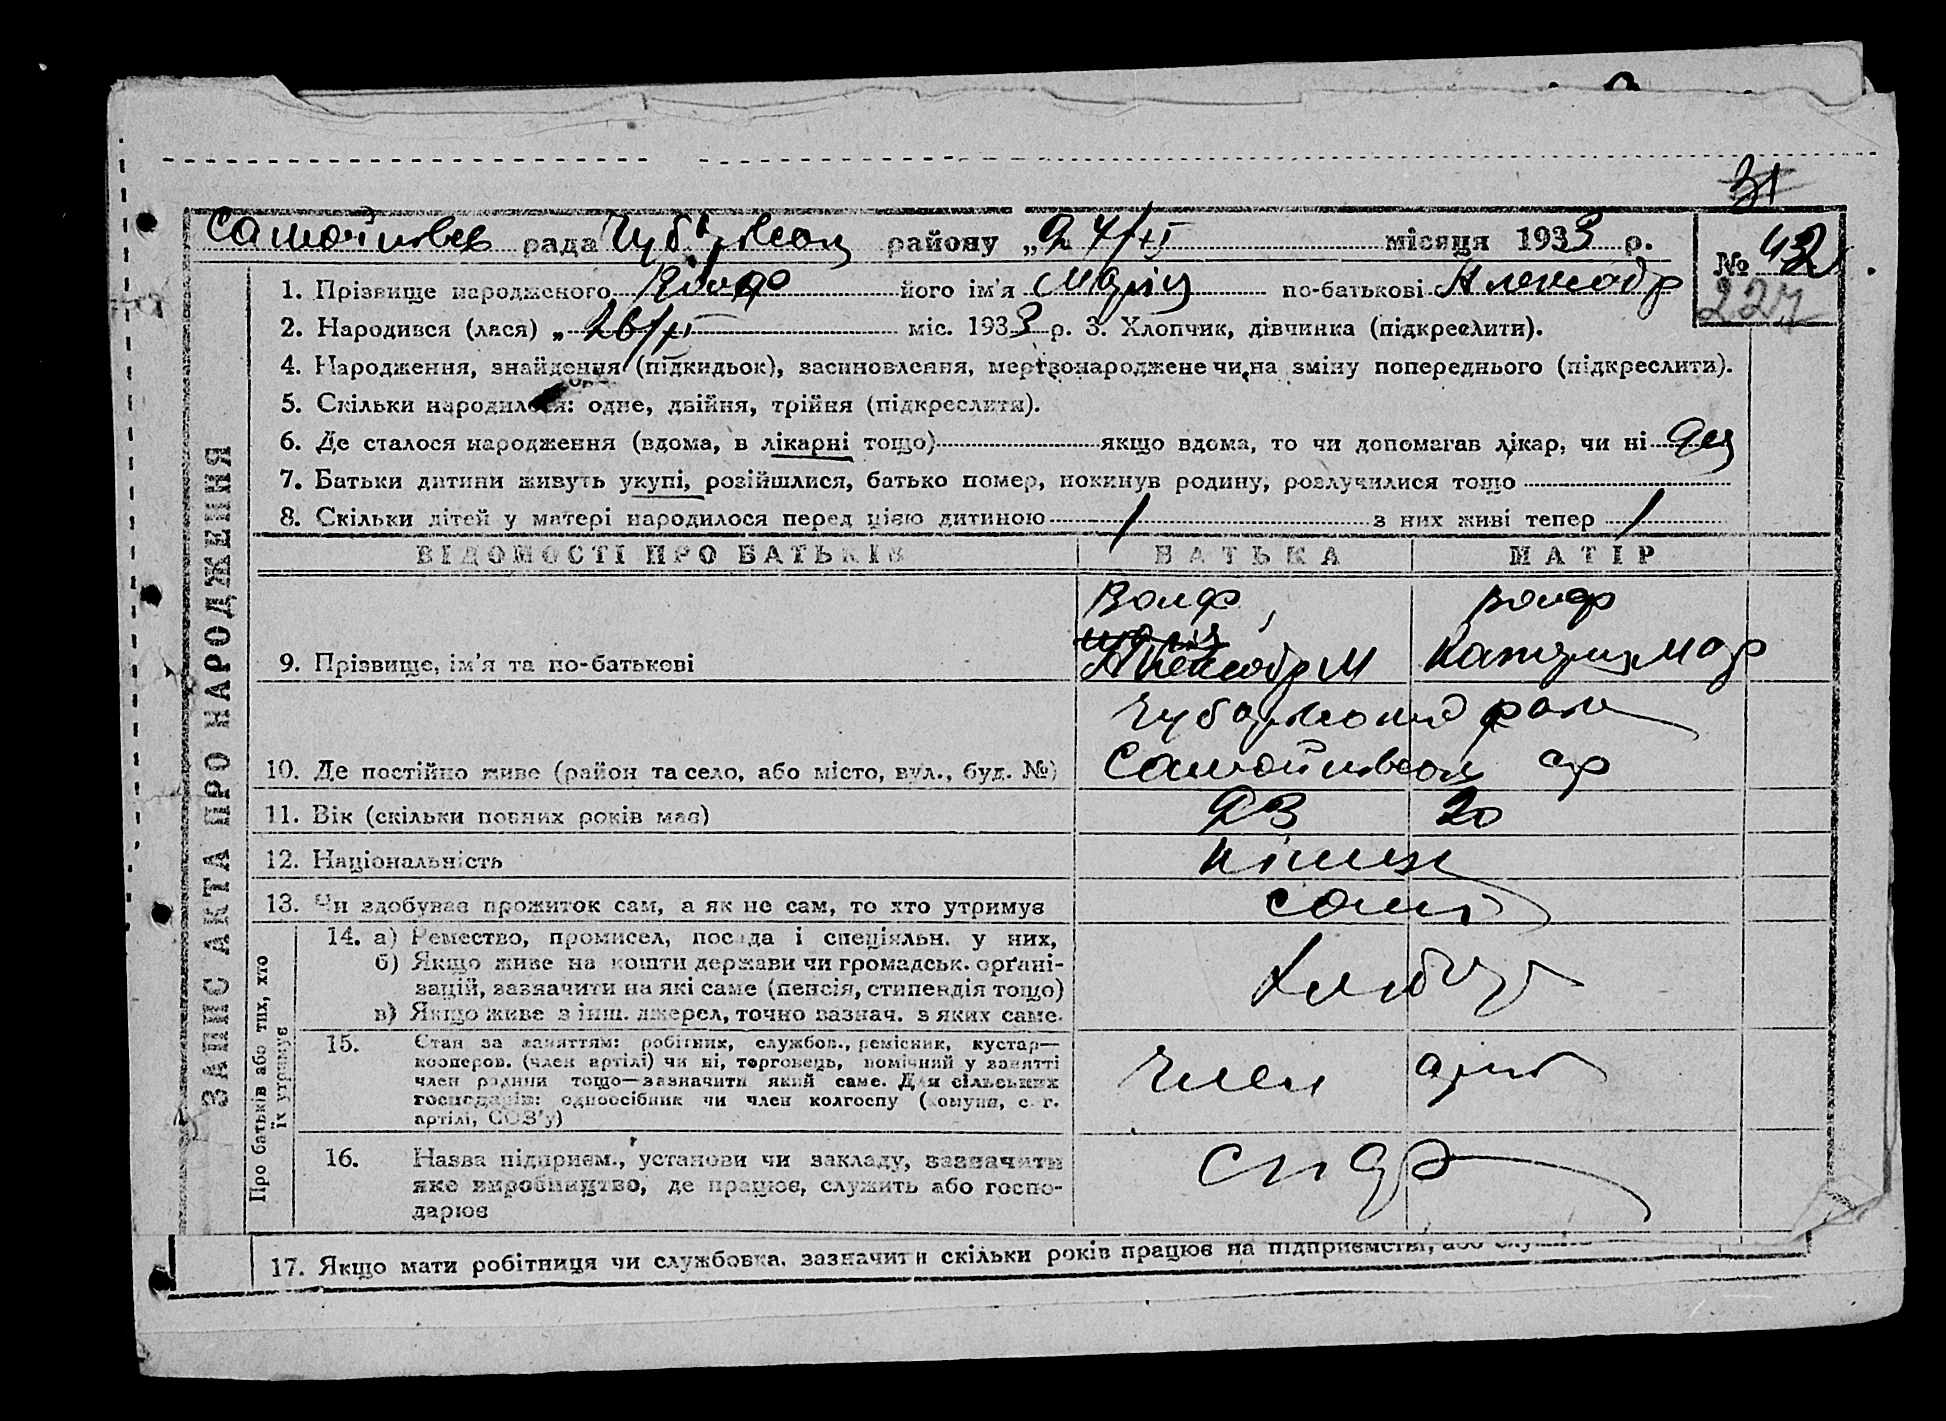 31
рада району „ 24/XI місяця 1933 р.
№ 432
227
1. Прізвище народженого Вольф його ім'я Марія по-батькові Александр
2. Народився (лася) „ міс. 1933 р. 3. Хлопчик, дівчинка (підкреслити).
4. Народження, знайдення (підкидьок), засиновлення, мертвонароджене чи на зміну попереднього (підкреслити).
5. Скільки народилося: одне, двійня, трійня (підкреслити).
6. Де сталося народження (вдома, в лікарні тощо) якщо вдома, то чи допомагав лікар, чи ні
7. Батьки дитини живуть укупі, розійшлися, батько помер, покинув родину, розлучилися тощо
8. Скільки дітей у матері народилося перед цією дитиною 1 з них живі тепер 1
ЗАПИС АКТА ПРО НАРОДЖЕННЯ
ВІДОМОСТІ ПРО БАТЬКІВ БАТЬКА МАТІР
Вольф Вольф
9. Прізвище, ім'я та по-батькові Александр М
10. Де постійно живе (район та село, або місто, вул., буд. №)
11. Вік (скільки повних років має) 23 20
12. Національність німці
13. Чи здобуває прожиток сам, а як не сам, то хто утримує самі
Про батьків або тих, хто їх утримує
14. а) Ремество, промисел, посада і спеціяльн. у них,
б) Якщо живе на кошти держави чи громадськ. орґані-
зацій, зазначити на які саме (пенсія, стипендія тощо)
в) Якщо живе з інш. джерел, точно зазнач. з яких саме.
хлібор
15. Стан за заняттям: робітник, службов., ремісник, кустар—
кооперов. (член артілі) чи ні, торговець, помічний у занятті
член родини тощо—зазначити який саме. Для сільських
господарів: одноосібник чи член колгоспу (комуни, с. г.
артілі, СОЗ'у)
член арт
16. Назва підприєм., установи чи закладу, зазначити
яке виробництво, де працює, служить або госпо-
дарює
17. Якщо мати робітниця чи службовка, зазначити скільки років працює на підприємстві, або